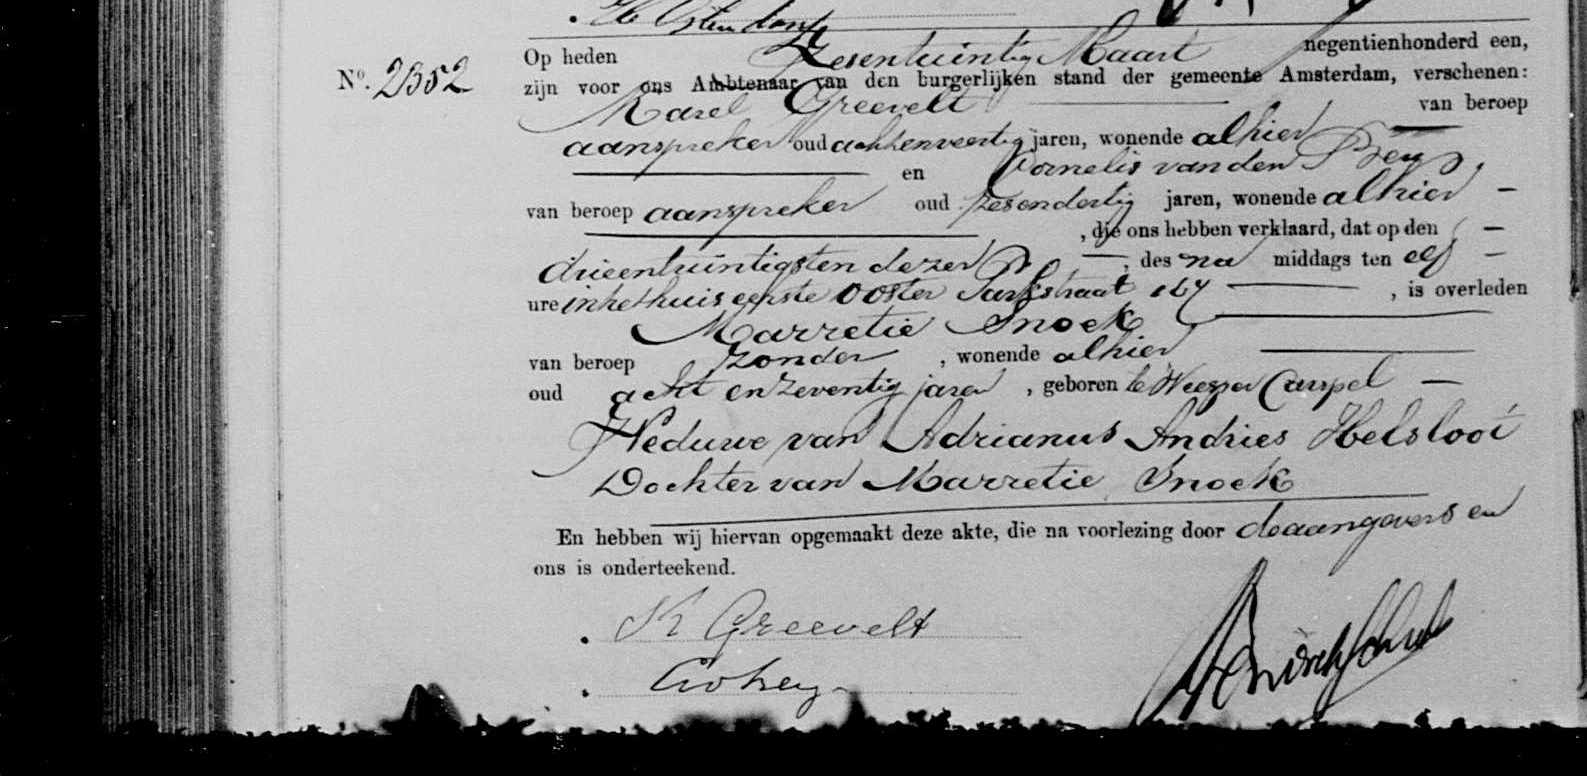 Nº. 2352
Op heden Zesentwintig Maart negentienhonderd een,
zijn voor ons Ambtenaar van den burgerlijken stand der gemeente Amsterdam, verschenen:
Karel Greevelt van beroep
aanspreker oud achtenveertig jaren, wonende alhier
en Cornelis van den
van beroep aanspreker oud zesendertig jaren, wonende alhier
, die ons hebben verklaard, dat op den
drieentwintigsten dezer, des na middags ten elf
ure in het huis eerste Ooster Parkstraat 167, is overleden
Marretie Snoek
van beroep zonder, wonende alhier
oud acht en zeventig jaren, geboren te Weesper Carspel
Weduwe van Adrianus Andries Helslooi
Dochter van Marretie Snoek
En hebben wij hiervan opgemaakt deze akte, die na voorlezing door de aangevers en
ons is onderteekend.
K Greevelt